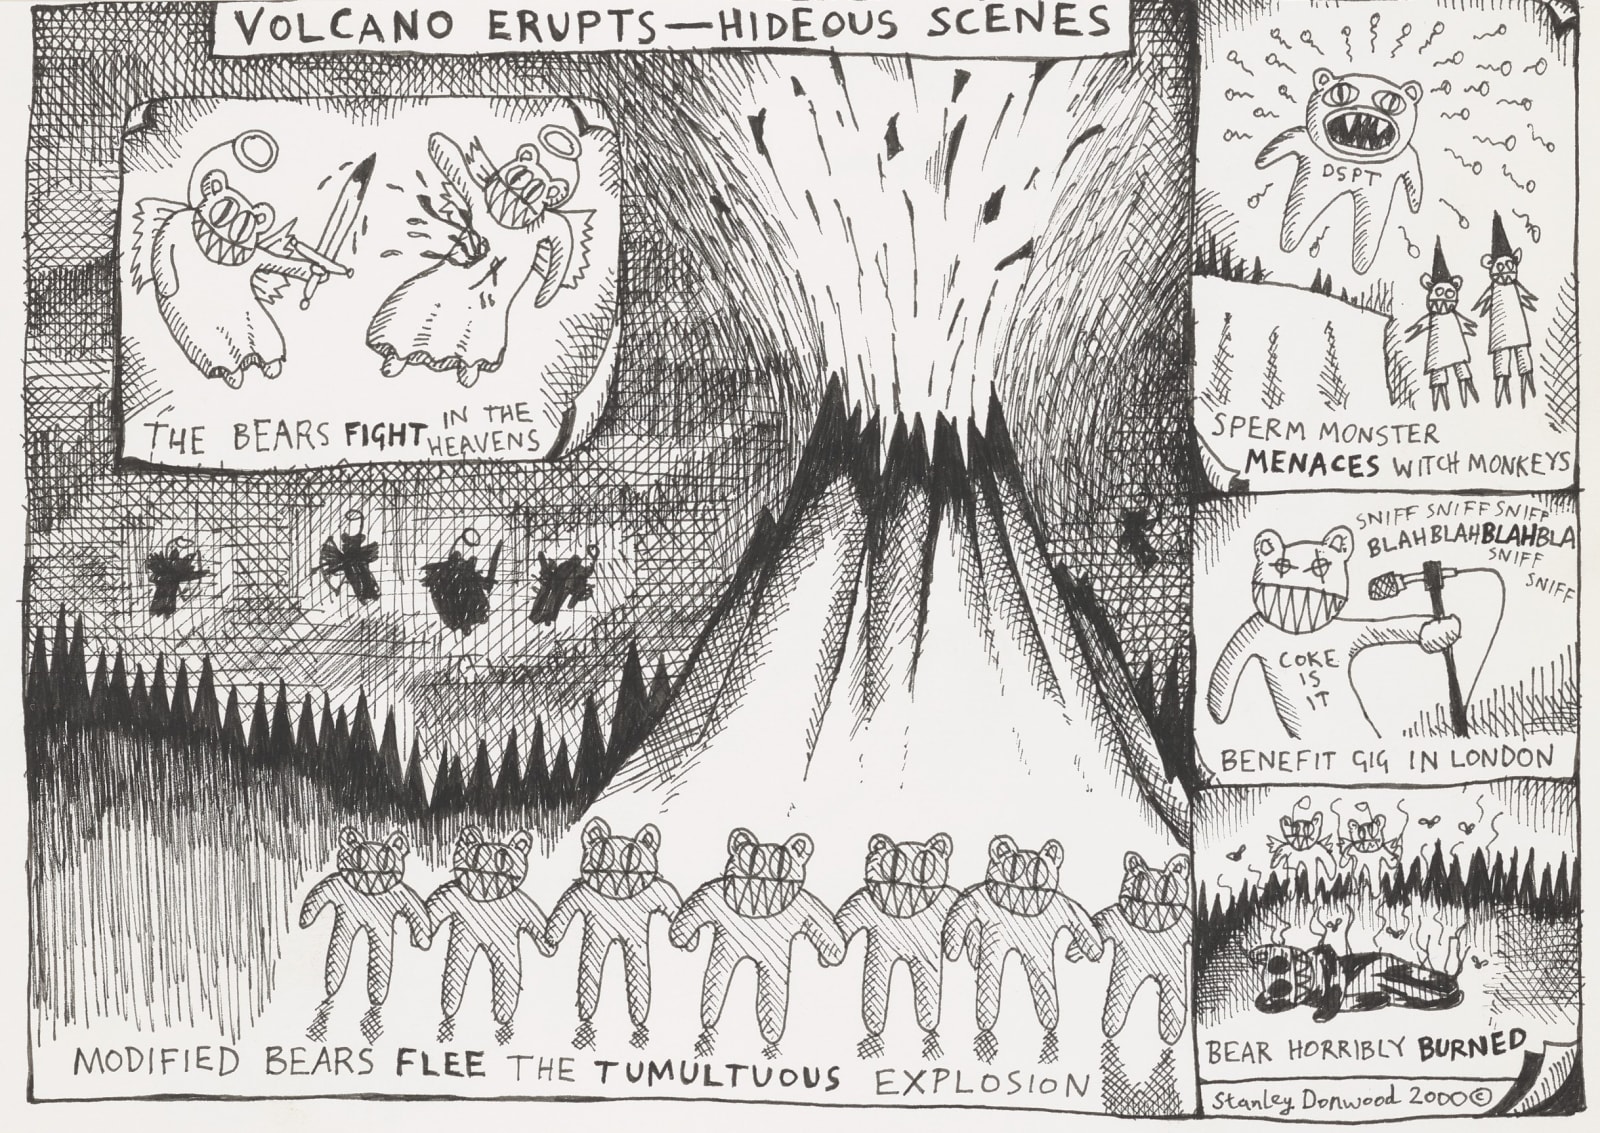 VOLCANO ERUPTS—HIDEOUS SCENES
THE BEARS FIGHT IN THE
HEAVENS
MODIFIED BEARS FLEE THE TUMULTUOUS EXPLOSION
DSPT
SPERM MONSTER
MENACES WITCH MONKEYS
SNIFF SNIFF SNIFF
BLAHBLAHBLAHBLA
SNIFF
SNIFF
COKE
IS
IT
BENEFIT GIG IN LONDON
BEAR HORRIBLY BURNED
Stanley Donwood 2000©